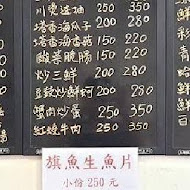 川燙透抽 200 250
塔香海瓜子 200 280
塔香海香菇 150 200
酸菜脆腸 150 200
炒三鮮 220 280
豆豉炒鮮蚵 200 280
蟹肉炒蛋 250 350
紅燒牛肉 250 350
旗魚生魚片
小份250元